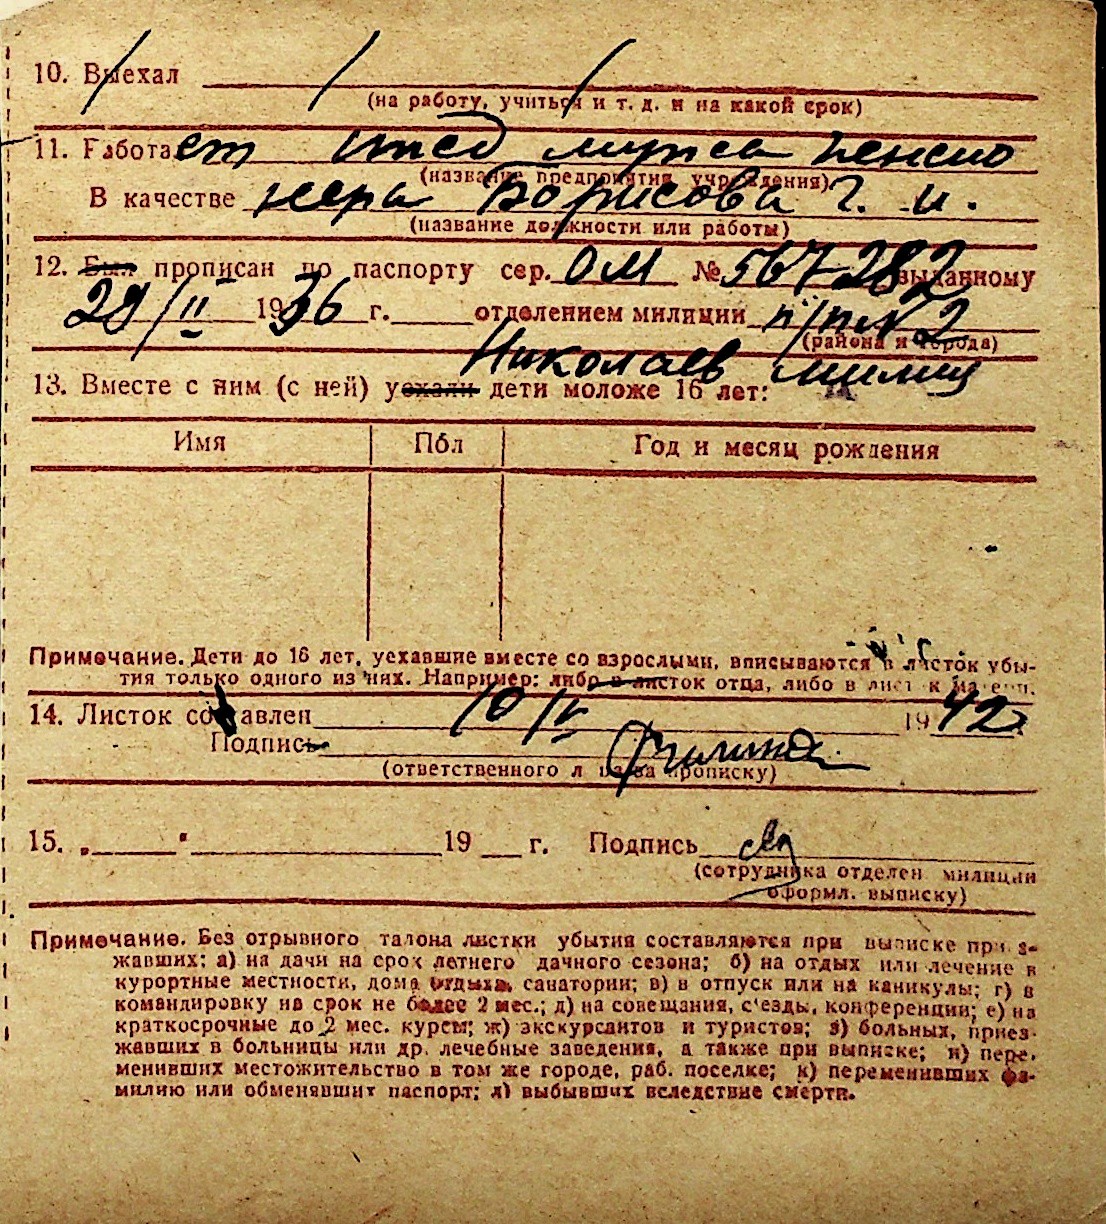 10. Выехал
(на работу, учиться и т. д. и на какой срок)
11. Работает ижд мужа пенсио
(название предприятия, учреждения)
В качестве нера Борисова Г. И.
(название должности или работы)
12. Был прописан по паспорту сер. ОМ № 567282 выданному
29/II 1936 г. отделением милиции п/п № 2
(района и города)
Николаев милиц
13. Вместе с ним (с ней) уехали дети моложе 16 лет:
Имя Пол Год и месяц рождения
Примечание. Дети до 16 лет, уехавшие вместе со взрослыми, вписываются в листок убы-
тия только одного из них. Например: либо в листок отца, либо в листок матери.
14. Листок составлен 10/V 1942
Подпись Филина
(ответственного лица за прописку)
15. „ " 19 г. Подпись
(сотрудника отделен. милиции
оформл. выписку)
Примечание. Без отрывного талона листки убытия составляются при выписке приез-
жавших: а) на дачи на срок летнего дачного сезона; б) на отдых или лечение в
курортные местности, дома отдыха, санатории; в) в отпуск или на каникулы; г) в
командировку на срок не более 2 мес.; д) на совещания, с'езды, конференции; е) на
краткосрочные до 2 мес. курсы; ж) экскурсантов и туристов; з) больных, приез-
жавших в больницы или др. лечебные заведения, а также при выписке; и) пере-
менивших местожительство в том же городе, раб. поселке; к) переменивших фа-
милию или обменявших паспорт; л) выбывших вследствие смерти.